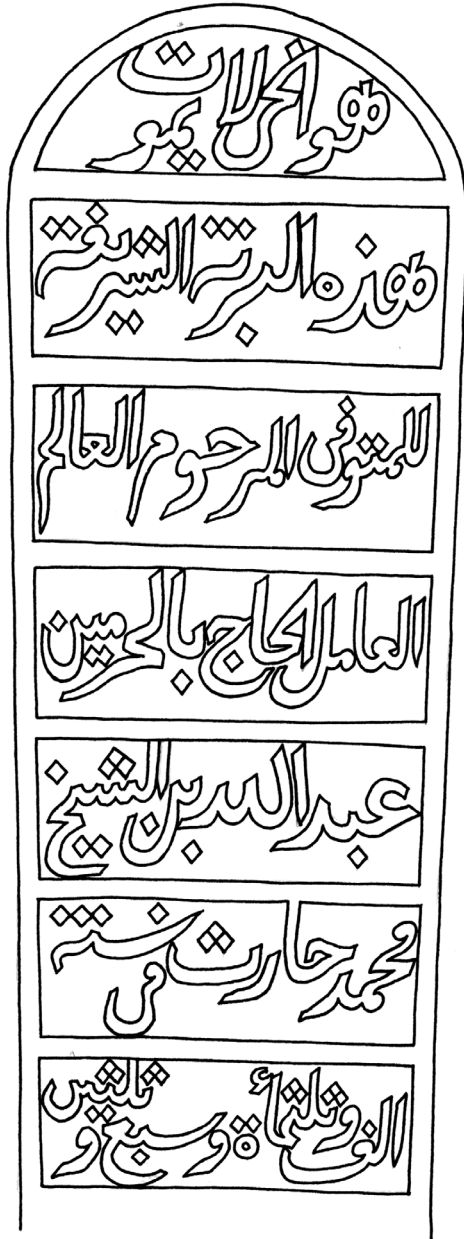 هو الحي لا يموت
هذه التربة الشريفة
للمتوفى المرحوم العالم
العامل الحاج بالحرمين
عبد الله بن الشيخ
محمد حارث في سنة
الف وثلثمائة وسبع وثلثين